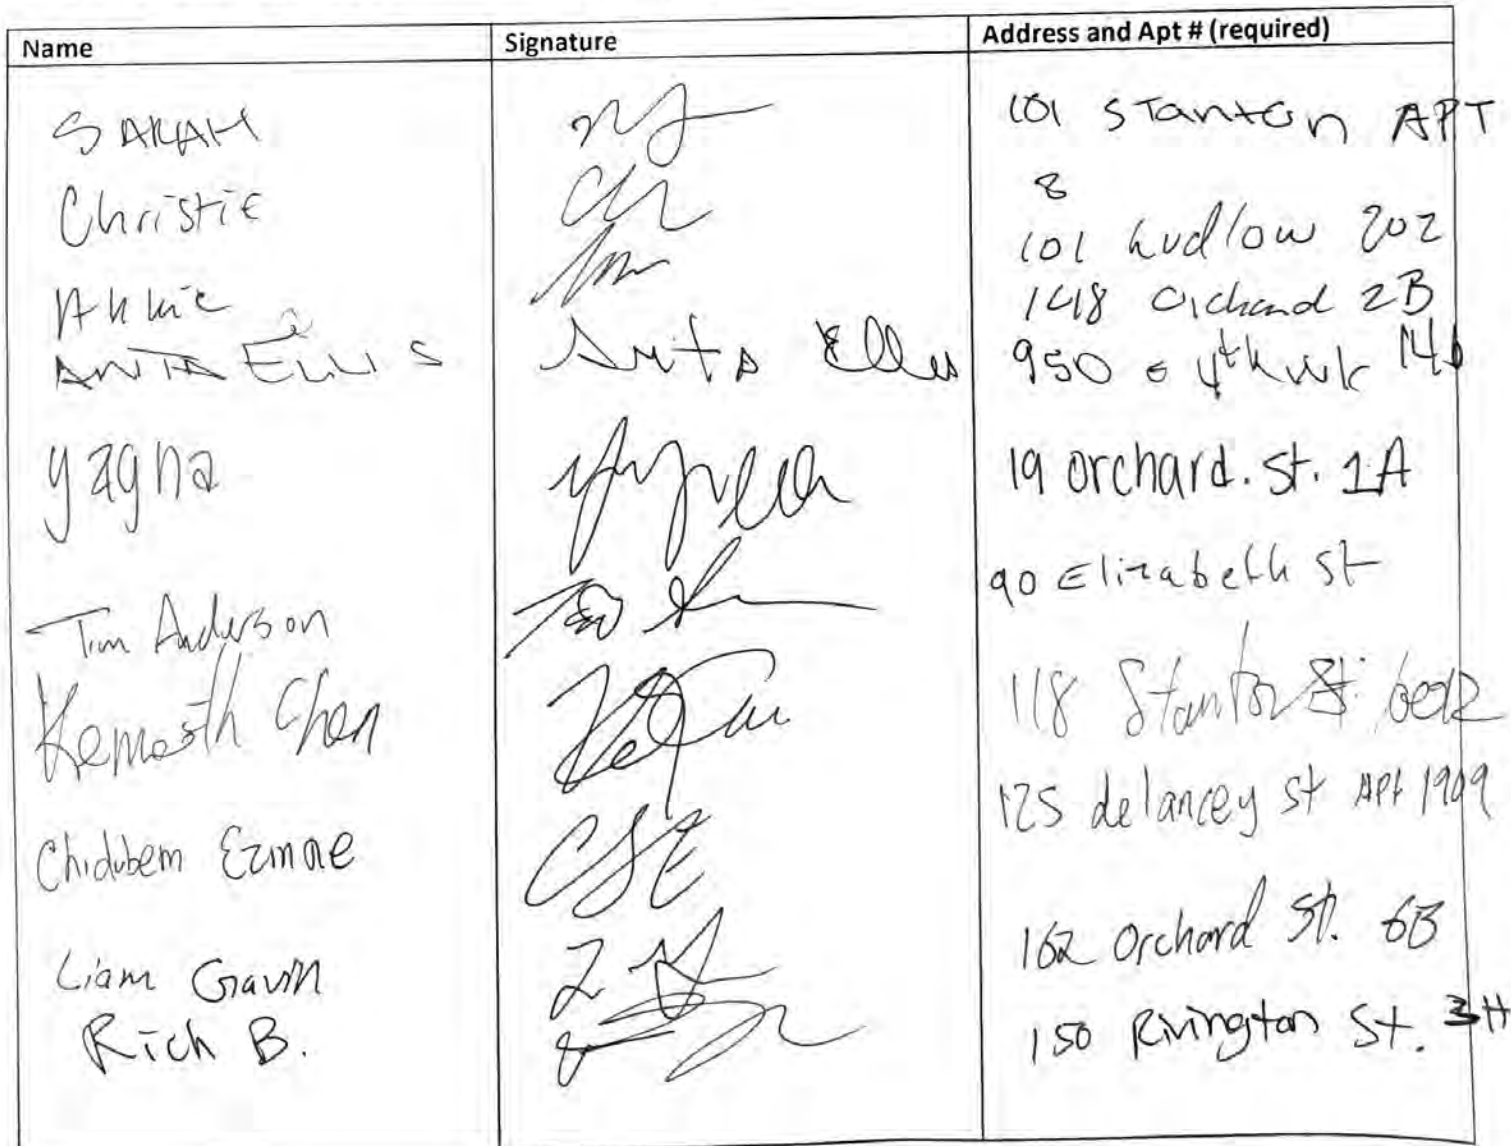 Name Signature Address and Apt # (required)
SARAH 101 Stanton APT
8
Christie 101 Ludlow 202
148 Orchard 2B
ANITA ELLIS Anita Ellis 950 e 4th wlk
yagna 19 orchard. st. 1A
Tim Anderson 90 Elizabeth St
Kenneth Chen 118 Stanton St.
Chidubem Ezinne 125 delancey st Apt 1909
Liam Gavin 162 Orchard St. 6B
Rich B. 150 Rivington St. 3H